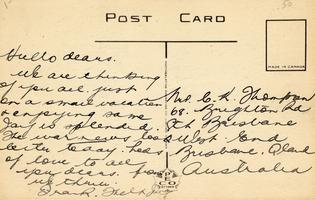 50
POST CARD
MADE IN CANADA
Hullo dears.
We are thinking
of you all just
on a small vacation
& enjoying same
day is splendid.
The war news looks
better today. heaps
of love to all
you dears. from
us three.
Frank. Nell
Mr. C. H. Thompson
68. Brighton Rd
Sth Brisbane
West End
Brisbane. Q.land
Australia